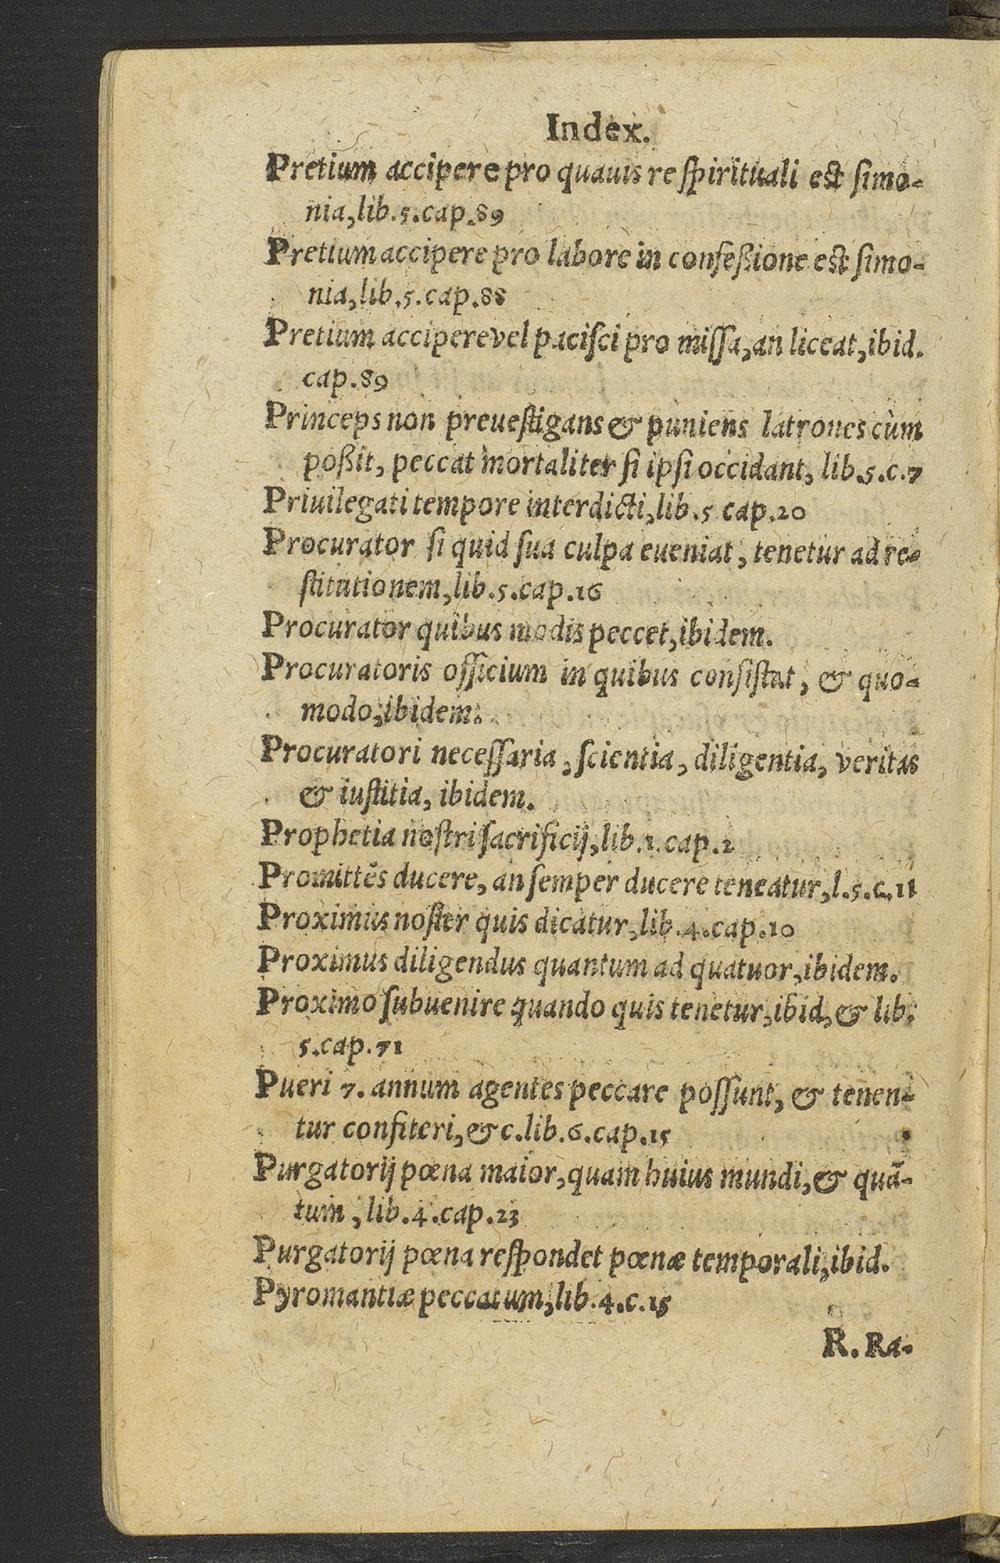 Index.
Pretium accipere pro quauis re ſpirituali est ſimo-
nia,lib.5.cap.89
Pretium accipere pro labore in confeßione est ſimo-
nia,lib.5.cap.88
Pretium accipere vel paciſci pro miſſa,an liceat,ibid.
cap.89
Princeps non preueſtigans & puniens latrones cùm
poßit, peccat mortaliter ſi ipſi occidant, lib.5.c.7
Priuilegati tempore interdicti,lib.5 cap.20
Procurator ſi quid ſua culpa eueniat, tenetur ad re-
ſtitutionem,lib.5.cap.16
Procurator quibus modis peccet,ibidem.
Procuratoris officium in quibus conſiſtat, & quo-
modo,ibidem.
Procuratori neceſſaria, ſcientia, diligentia, veritas
& iuſtitia, ibidem.
Prophetia noſtri ſacrificij,lib.1.cap.2
Promittēs ducere, an ſemper ducere teneatur,l.5.c.11
Proximus noſter quis dicatur,lib.4.cap.10
Proximus diligendus quantum ad quatuor,ibidem.
Proximo ſubuenire quando quis tenetur,ibid,& lib.
5.cap.71
Pueri 7. annum agentes peccare poſſunt, & tenen-
tur confiteri,&c.lib.6.cap.15
Purgatorij pœna maior,quam huius mundi,& quā-
tum, lib.4.cap.23
Purgatorij pœna reſpondet pœnæ temporali,ibid.
Pyromantiæ peccatum,lib.4.c.15
R. Ra-